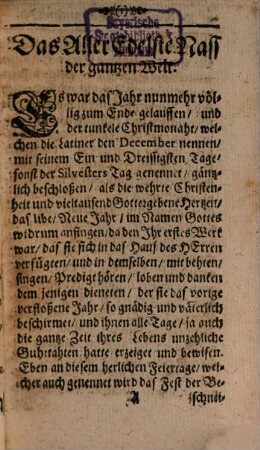 Das Aller Edelste Nass
der gantzen Welt.
Es war das Jahr nunmehr völ-
lig zum Ende gelauffen/ und
der tunkele Christmonaht/ wel-
chen die Latiner den December nennen/
mit seinem Ein und Dreissigsten Tage/
sonst der Silvesters Tag genennet/ gäntz-
lich beschloßen/ als die wehrte Christen-
heit und viel tausend Gottergebene Hertzen/
das libe/ Neue Jahr/ im Namen Gottes
widrum anfingen/ da den Ihr erstes Werk
war/ daß sie sich in das Hauß des HErren
verfügten/ und in demselben/ mit behten/
singen/ Predigt hören/ loben und danken
dem jenigen dieneten/ der sie das vorige
verfloßene Jahr/ so gnädig und väterlich
beschirmet/ und ihnen alle Tage/ ja auch
die gantze Zeit ihres Lebens unzehliche
Guhttahten hatte erzeiget und bewisen.
Eben an diesem herlichen Feiertage/ wel-
cher auch genennet wird das Fest der Be-
A schnei-